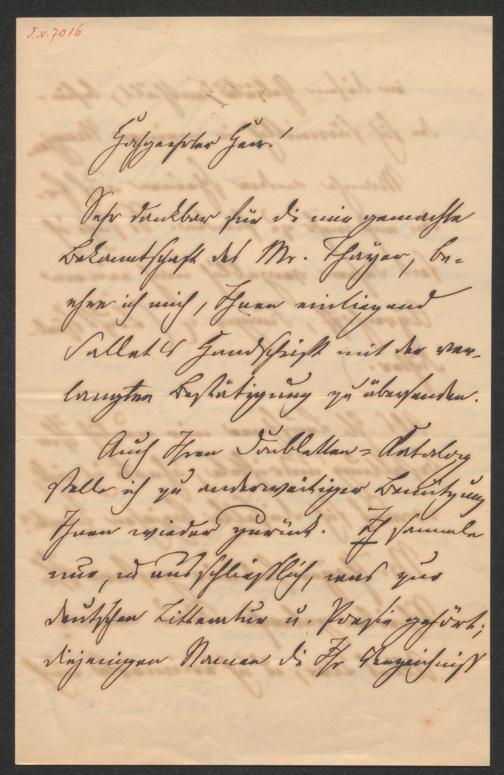 I.N. 7016
Hochgeehrter Herr!
Sehr dankbar für die mir gemachte
Bekanntschaft des Mr. Thayer, be-
ehre ich mich, Ihnen einliegend
Sallet's Handschrift mit der ver-
langten Bestätigung zu übersenden.
Auch Ihren Doubletten-Katalog
stelle ich zu anderweitiger Benützung
Ihnen wieder zurück. Ich sammle
nur, und ausschließlich, was zur
deutschen Litteratur u. Poesie gehört;
diejenigen Namen die Ihr Verzeichniß